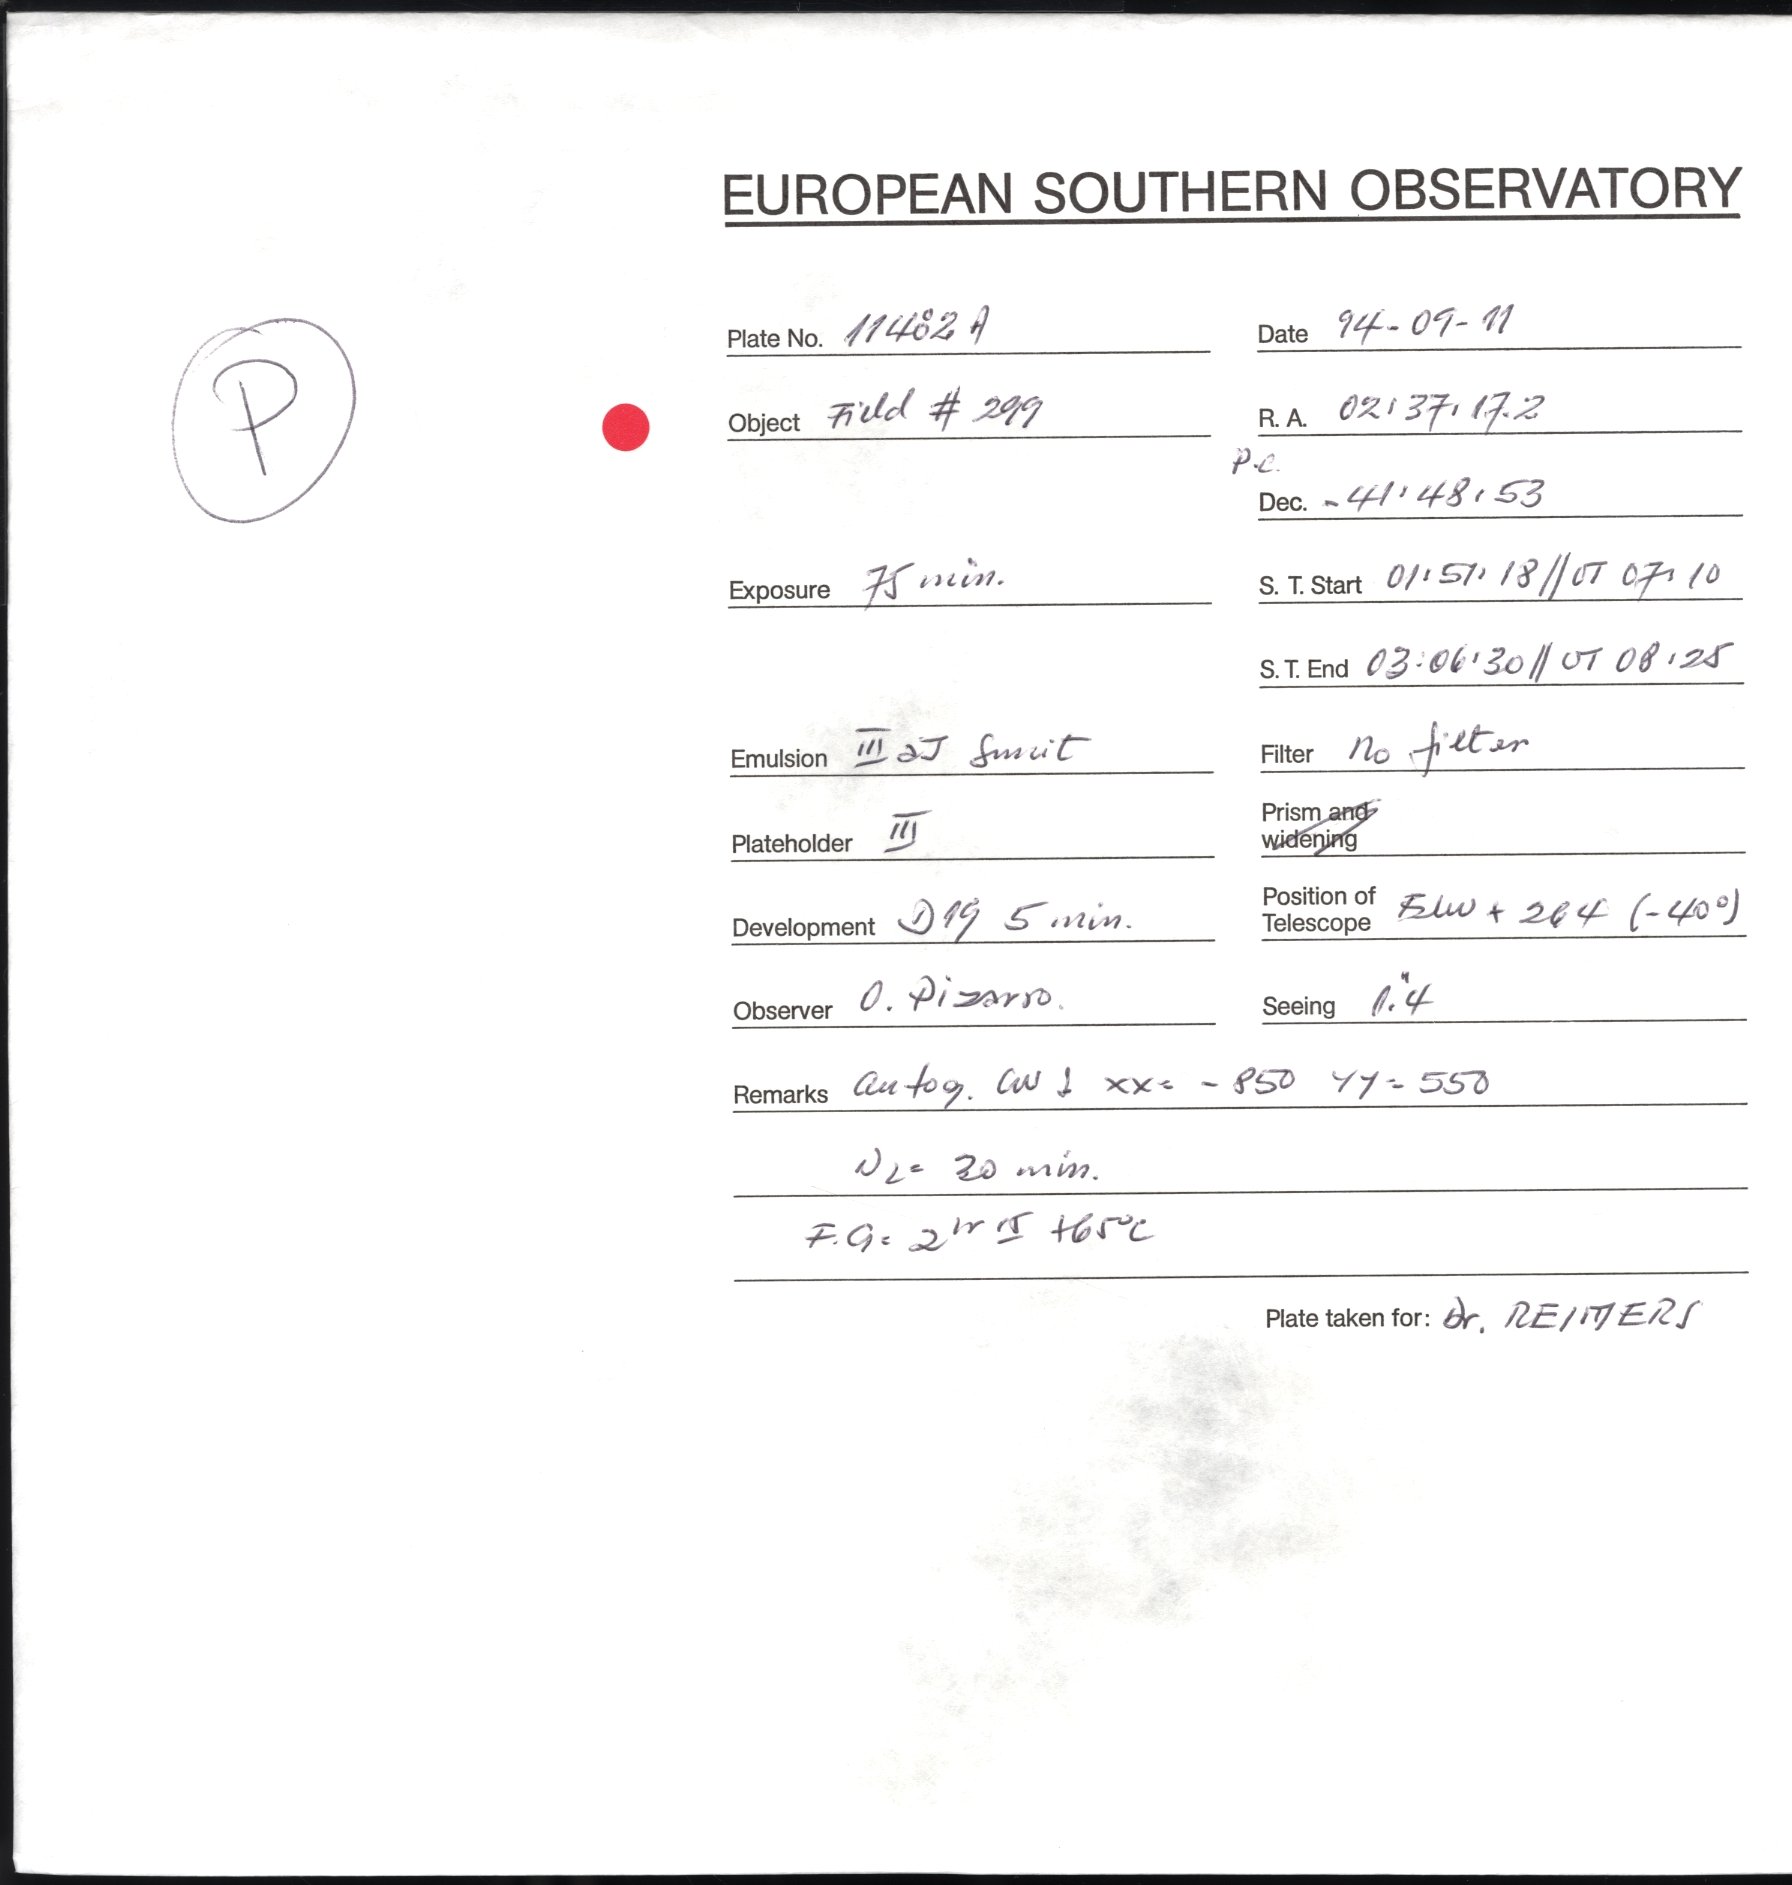 EUROPEAN SOUTHERN OBSERVATORY
P
Plate No. 11482 A
Date 94-09-11
Object Field # 299
R. A. 02:37:17.2
P.C.
Dec. -41:48:53
Exposure 75 min.
S. T. Start 01:51:18 // UT 07:10
S. T. End 03:06:30 // UT 08:25
Emulsion III aJ
Filter No filter
Plateholder III
Prism and
widening
Development D19 5 min.
Position of
Telescope + 264 (-40°)
Observer O. Pizarro.
Seeing 1."4
Remarks autog. xx= -850 YY= 550
N2= 30 min.
F.G= 2hr +65°C
Plate taken for: Dr. REIMERS